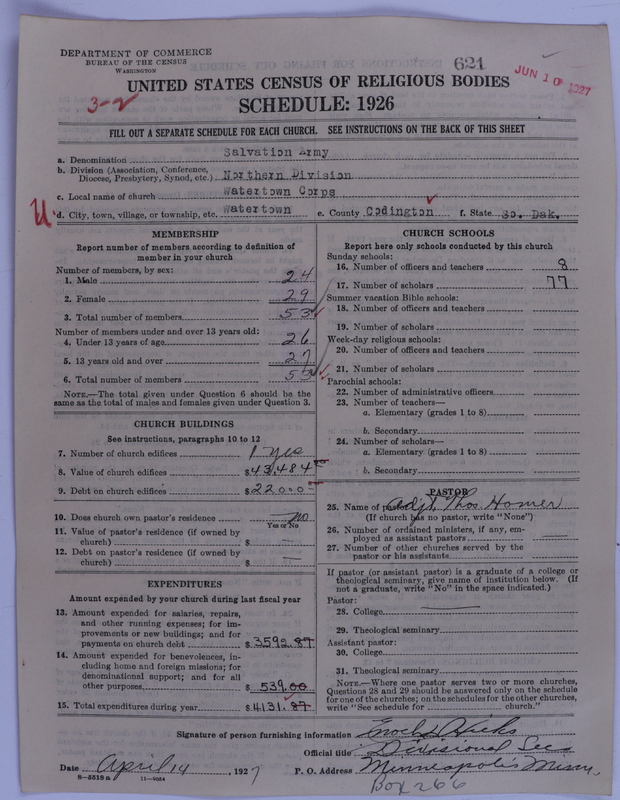 DEPARTMENT OF COMMERCE
BUREAU OF THE CENSUS
WASHINGTON
621
JUN 10 1927
3-2
UNITED STATES CENSUS OF RELIGIOUS BODIES
SCHEDULE: 1926
FILL OUT A SEPARATE SCHEDULE FOR EACH CHURCH. SEE INSTRUCTIONS ON THE BACK OF THIS SHEET
a. Denomination Salvation Army
b. Division (Association, Conference,
Diocese, Presbytery, Synod, etc.) Northern Division
c. Local name of church Watertown Corps
d. City, town, village, or township, etc. Watertown e. County Codington f. State So. Dak.
MEMBERSHIP
Report number of members according to definition of
member in your church
Number of members, by sex:
1. Male 24
2. Female 29
3. Total number of members 53
Number of members under and over 13 years old:
4. Under 13 years of age 26
5. 13 years old and over 27
6. Total number of members 53
NOTE.—The total given under Question 6 should be the
same as the total of males and females given under Question 3.
CHURCH BUILDINGS
See instructions, paragraphs 10 to 12
7. Number of church edifices 1 yes
8. Value of church edifices $43,484
9. Debt on church edifices $22000
10. Does church own pastor's residence no
Yes or No
11. Value of pastor's residence (if owned by
church) $ —
12. Debt on pastor's residence (if owned by
church) $ —
EXPENDITURES
Amount expended by your church during last fiscal year
13. Amount expended for salaries, repairs,
and other running expenses; for im-
provements or new buildings; and for
payments on church debt $3592.87
14. Amount expended for benevolences, in-
cluding home and foreign missions; for
denominational support; and for all
other purposes $539.00
15. Total expenditures during year $4131.87
CHURCH SCHOOLS
Report here only schools conducted by this church
Sunday schools:
16. Number of officers and teachers 8
17. Number of scholars 77
Summer vacation Bible schools:
18. Number of officers and teachers
19. Number of scholars
Week-day religious schools:
20. Number of officers and teachers
21. Number of scholars
Parochial schools:
22. Number of administrative officers
23. Number of teachers—
a. Elementary (grades 1 to 8)
b. Secondary
24. Number of scholars—
a. Elementary (grades 1 to 8)
b. Secondary
PASTOR
25. Name of pastor Adjt. Thos Homer
(If church has no pastor, write "None")
26. Number of ordained ministers, if any, em-
ployed as assistant pastors —
27. Number of other churches served by the
pastor or his assistants
If pastor (or assistant pastor) is a graduate of a college or
theological seminary, give name of institution below. (If
not a graduate, write "No" in the space indicated.)
Pastor:
28. College —
29. Theological seminary
Assistant pastor:
30. College
31. Theological seminary
NOTE.—Where one pastor serves two or more churches,
Questions 28 and 29 should be answered only on the schedule
for one of the churches; on the schedules for the other churches,
write "See schedule for church."
Signature of person furnishing information Enoch Hicks
Official title Divisional Secy
Date April 14, 1927 P. O. Address Minneapolis Minn.
8—5519 a 11—9054
Box 266